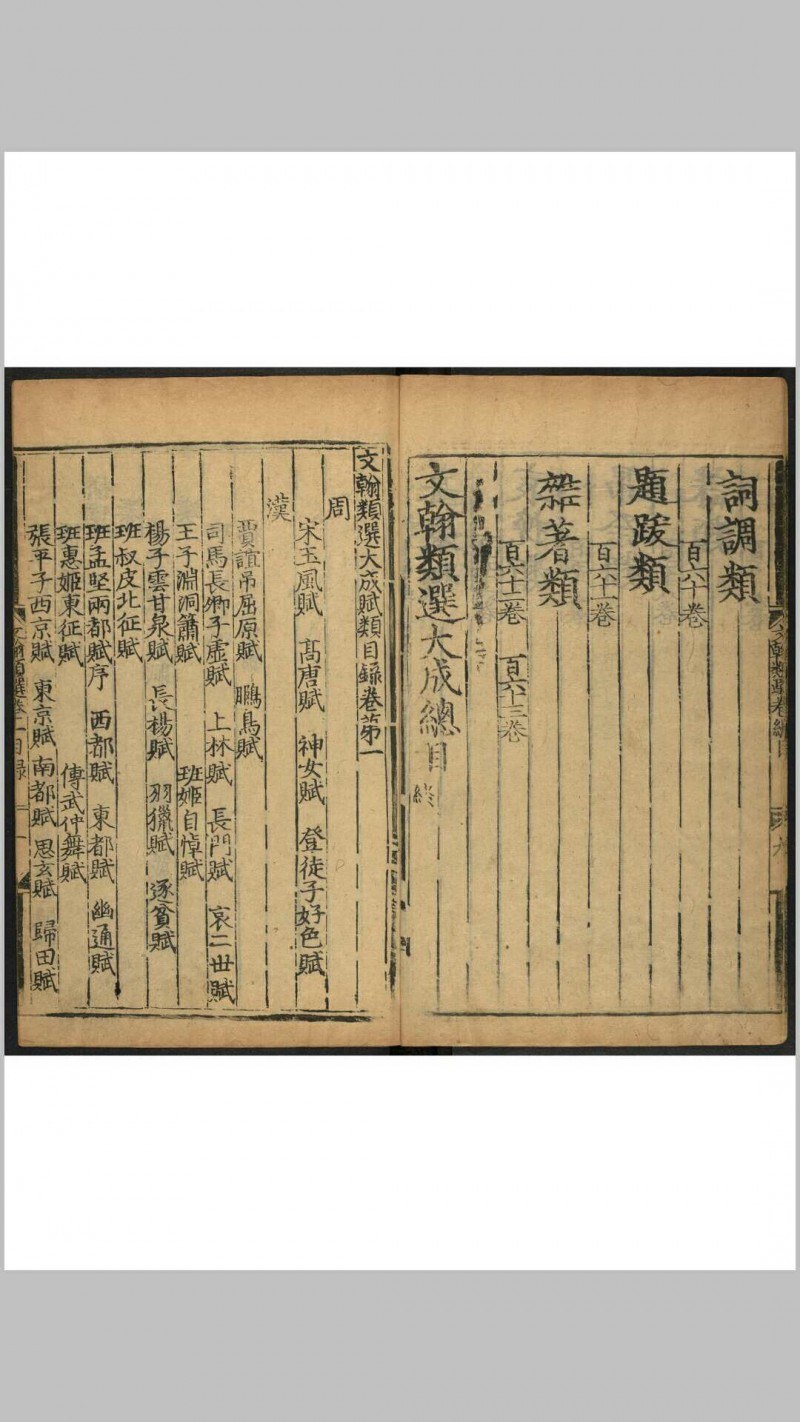 詞調類
百六十卷
題跋類
百六十一卷
雜著類
百六十二卷 百六十三卷
文翰類選大成總目終
文翰類選大成賦類目錄卷第一
周
宋玉風賦 髙唐賦 神女賦 登徒子好色賦
漢
賈誼吊屈原賦 鵩鳥賦
司馬長卿子虛賦 上林賦 長門賦 哀二世賦
王子淵洞簫賦 班姬自悼賦
楊子雲甘泉賦 長楊賦 羽獵賦 逐貧賦
班叔皮北征賦
班孟堅兩都賦序 西都賦 東都賦 幽通賦
班惠姬東征賦 傅武仲舞賦
張平子西京賦 東京賦 南都賦 思玄賦 歸田賦